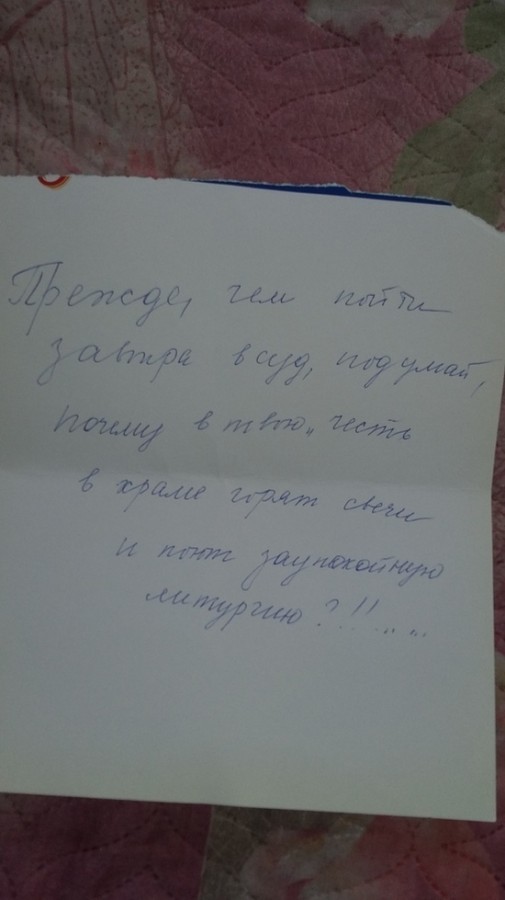 Прежде, чем пойти
завтра в суд, подумай,
почему в твою „ честь
в храме горят свечи
и поют заупокойную
литургию?!!.....